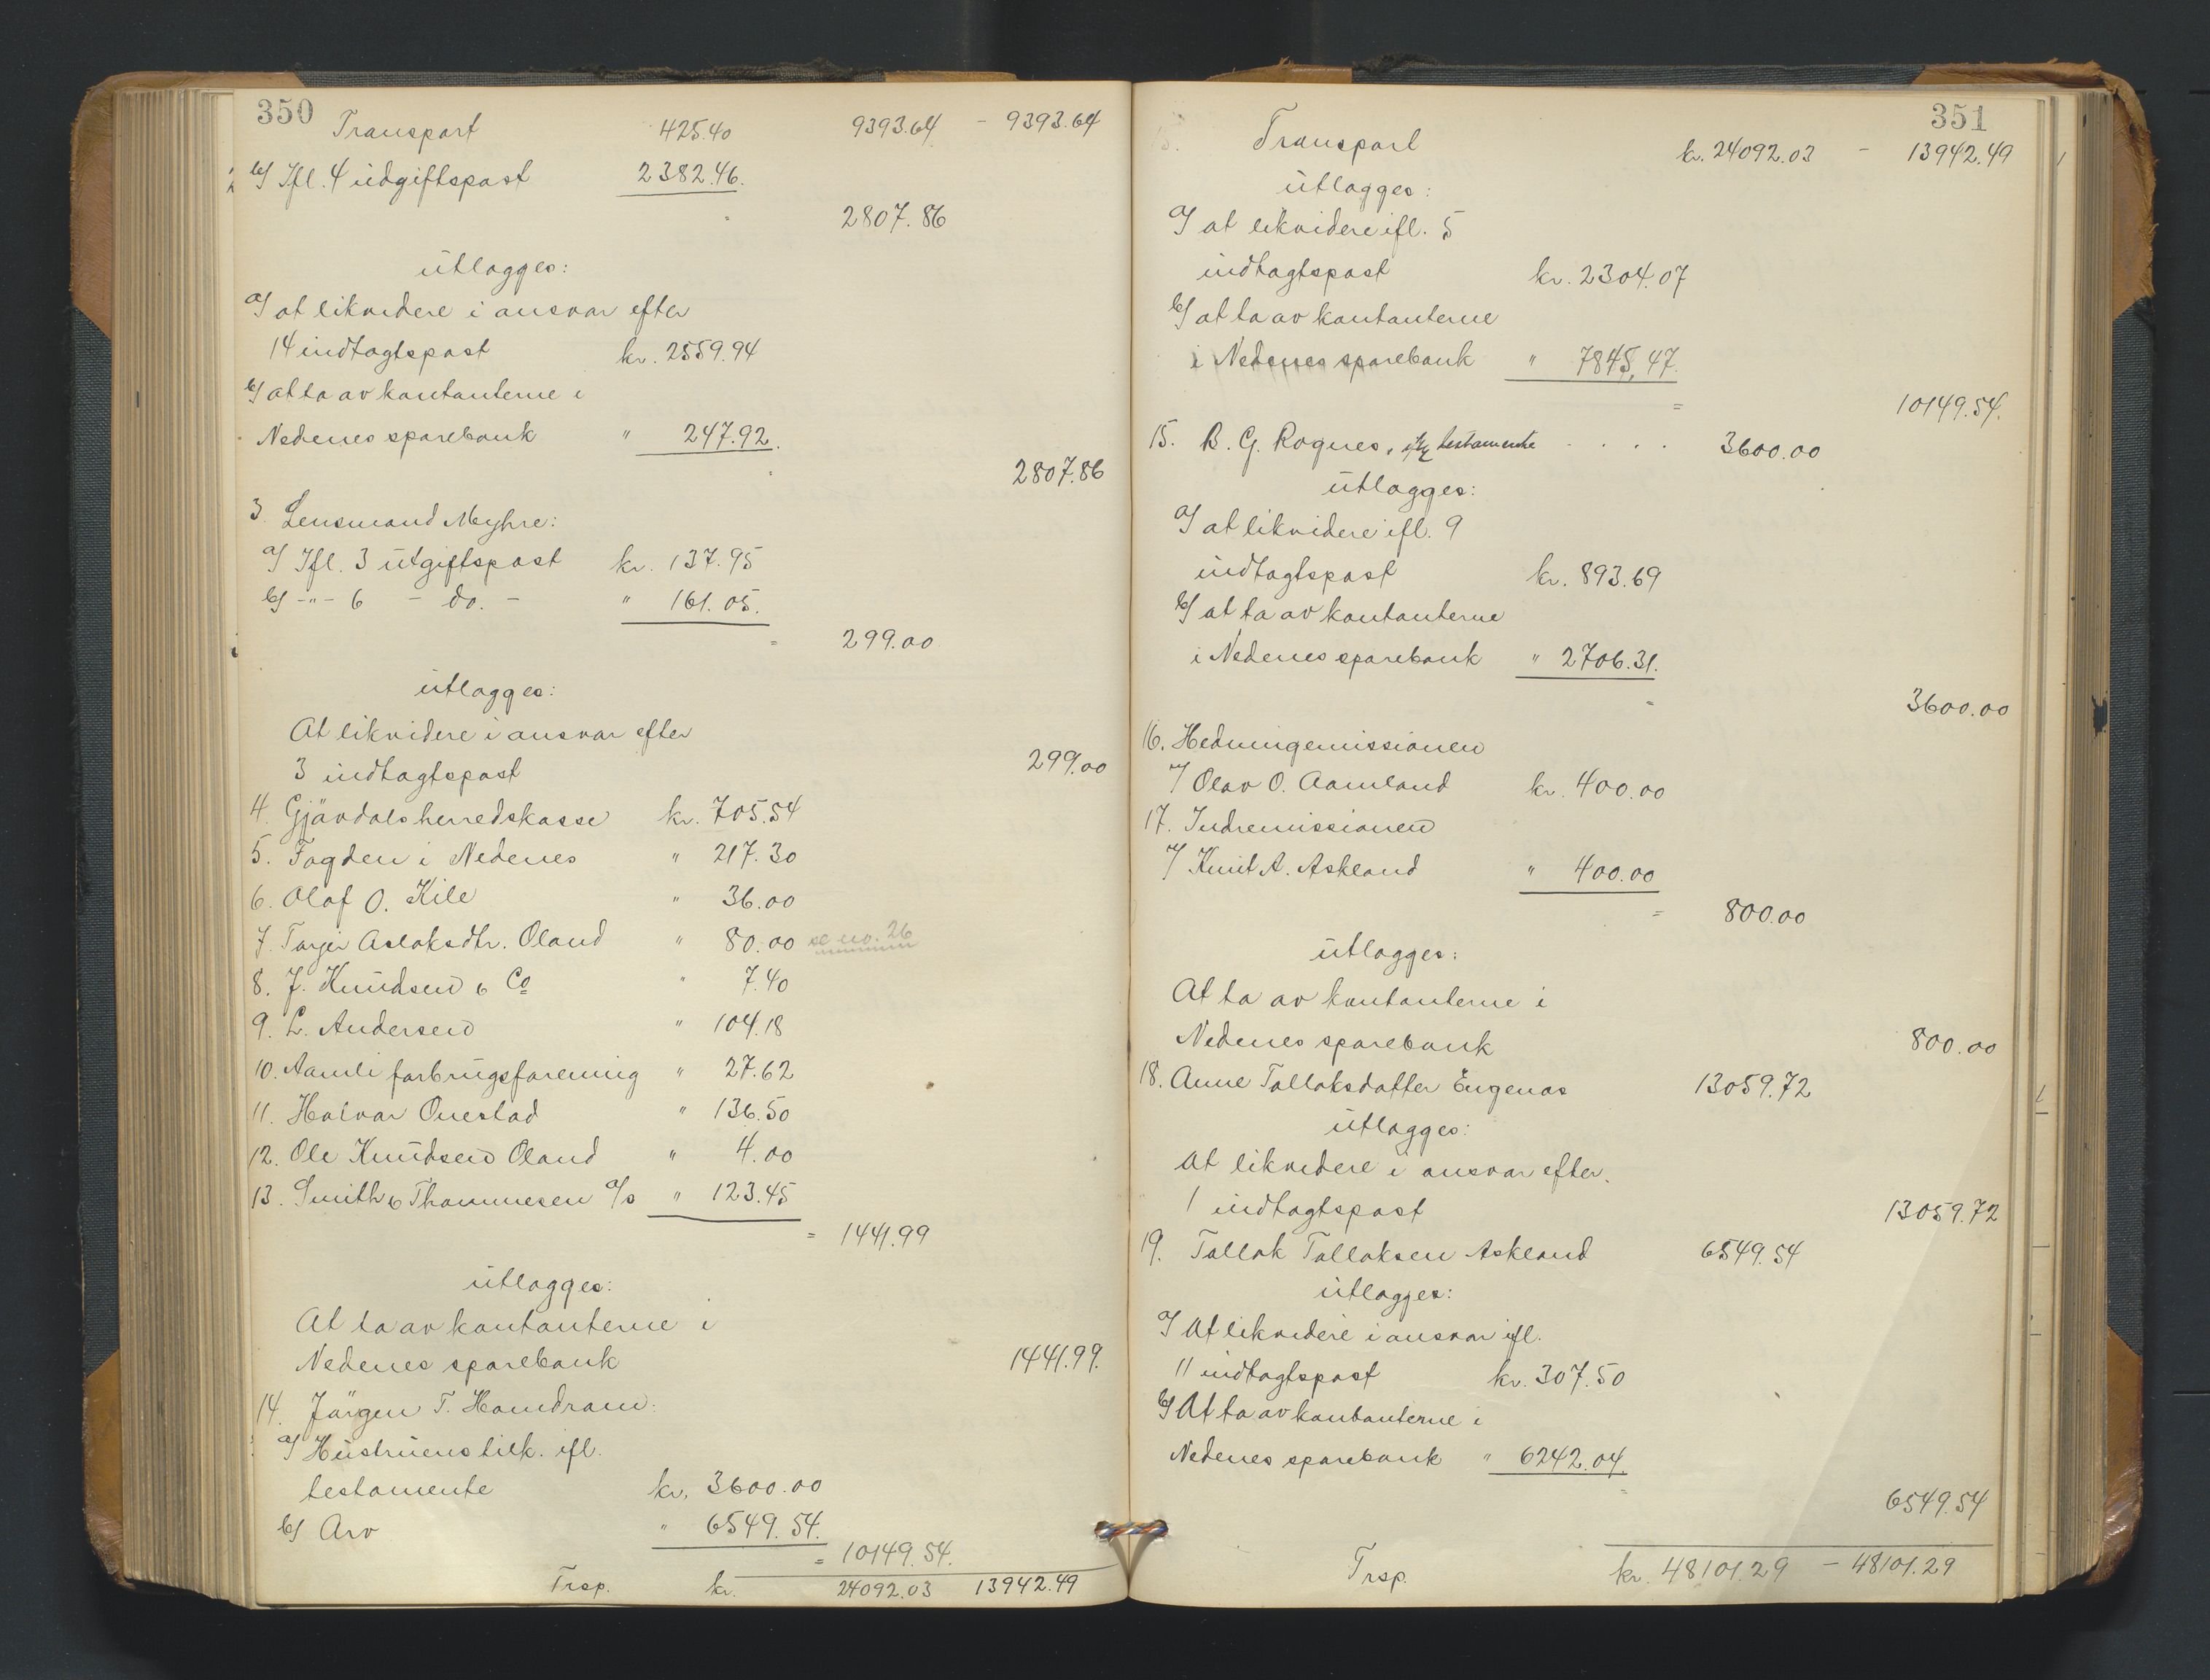 350
Transport 425.40 9393.64 - 9393.64
b/ Ifl. 4 udgiftspost 2382.46.
2807.86
ütlægges:
a/ at likvidere i ansvar efter
14 indtægtspost kr. 2559.94
b/ at ta av kontanterne i
Nedenes sparebank " 247.92.
2807.86
3 Lensmand Myhre:
a/ Ifl. 3 ütgiftspost kr. 137.95
b/ -"- 6 - do. - " 161.05.
= 299.00
ütlægges:
At likvidere i ansvar efter
3 indtægtspost 299.00
4. Gjövdals herredskasse kr. 705.54
5. Fogden i Nedenes " 217.30
6. Olaf O. Kile " 36.00
7. Torjer Aslaksdtr. Öland " 80.00 se no. 26
8. J. Knüdsen & Co " 7.40
9. L. Andersen " 104.18
10. Aamli forbrügsforening " 27.62
11. Halvor Ouestad " 136.50
12. Ole Knüdsen Öland " 4.00
13. Smith & Thommesen a/s " 123.45
= 1441.99
ütlægges:
At ta av kontanterne i
Nedenes sparebank 1441.99.
14. Jörgen T. Homdrom:
a/ Hüstrüens tilk. ifl.
testamente kr. 3600.00
b/ Arv " 6549.54.
= 10149.54.
Trsp. kr. 24092.03 13942.49
351
Transport kr. 24092.03 - 13942.49
ütlægges:
a/ at likvidere ifl. 5
indtægtspost kr. 2304.07
b/ at ta av kontanterne
i Nedenes sparebank " 7845,47.
= 10149.54.
15. B. G. Rognes, testamente . . . . 3600.00
ütlægges:
a/ at likvidere ifl. 9
indtægtspost kr. 893.69
b/ at ta av kontanterne
i Nedenes sparebank " 2706.31.
3600.00
16. Hedningemissionen
v/ Olav O. Aamland kr. 400.00
17. Indremissionen
v/ Knüt A. Askland " 400.00
= 800.00
ütlægges:
At ta av kontanterne i
Nedenes sparebank 800.00
18. Anne Tallaksdatter Engenæs 13059.72
ütlægges:
At likvidere i ansvar efter.
1 indtægtspost 13059.72
19. Tallak Tallaksen Askland 6549.54
ütlægges:
a/ At likvidere i ansvar ifl.
11 indtægtspost kr. 307.50
b/ At ta av kontanterne i
Nedenes sparebank " 6242.04.
6549.54
Trsp. kr. 48101.29 - 48101.29